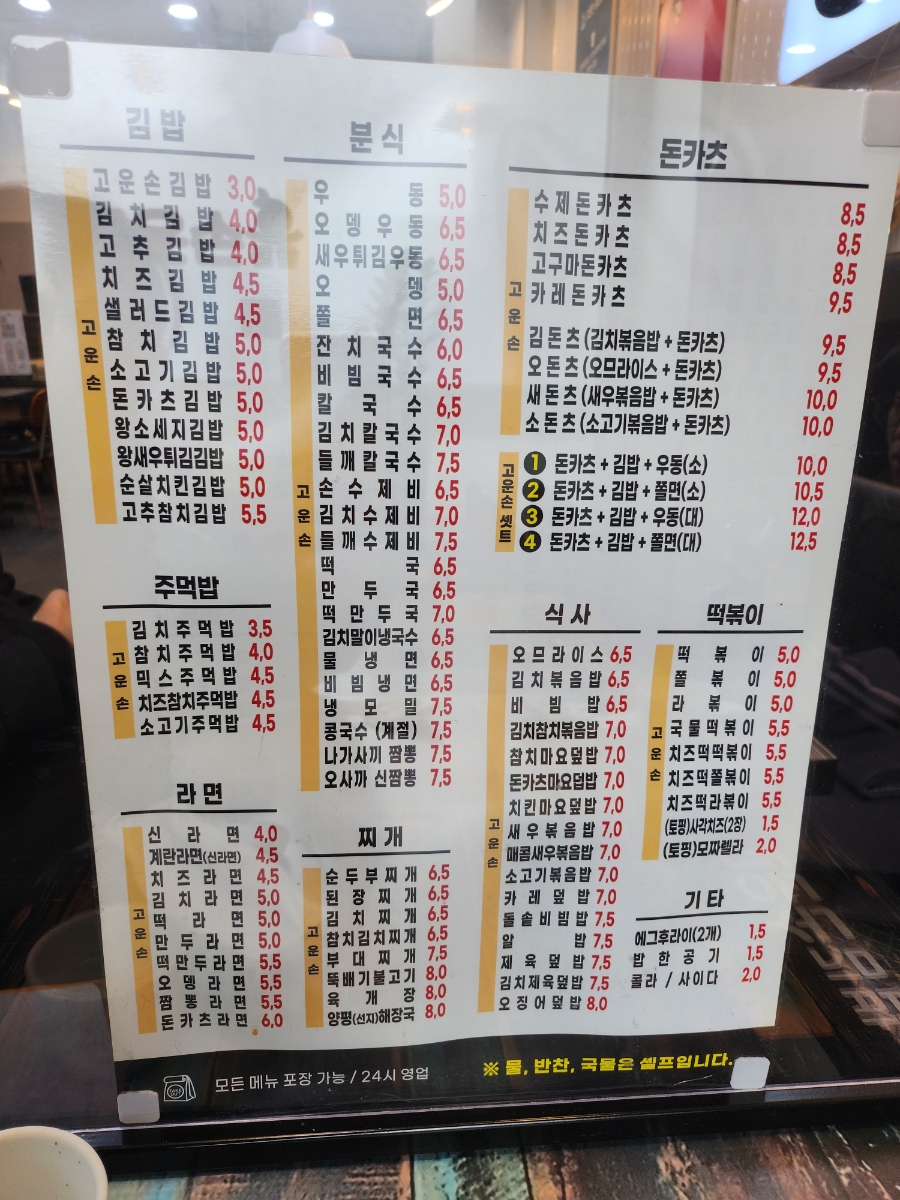 김밥
고운손
고운손김밥 3,0
김치김밥 4,0
고추김밥 4,0
치즈김밥 4,5
샐러드김밥 4,5
참치김밥 5,0
소고기김밥 5,0
돈카츠김밥 5,0
왕소세지김밥 5,0
왕새우튀김김밥 5,0
순살치킨김밥 5,0
고추참치김밥 5,5
주먹밥
고운손
김치주먹밥 3,5
참치주먹밥 4,0
믹스주먹밥 4,5
치즈참치주먹밥 4,5
소고기주먹밥 4,5
라면
고운손
신라면 4,0
계란라면(신라면) 4,5
치즈라면 4,5
김치라면 5,0
떡라면 5,0
만두라면 5,0
떡만두라면 5,5
오뎅라면 5,5
짬뽕라면 5,5
돈카츠라면 6,0
분식
고운손
우동 5,0
오뎅우동 6,5
새우튀김우동 6,5
오뎅 5,0
쫄면 6,5
잔치국수 6,0
비빔국수 6,5
칼국수 6,5
김치칼국수 7,0
들깨칼국수 7,5
손수제비 6,5
김치수제비 7,0
들깨수제비 7,5
떡국 6,5
만두국 6,5
떡만두국 7,0
김치말이냉국수 6,5
물냉면 6,5
비빔냉면 6,5
냉모밀 7,5
콩국수 (계절) 7,5
나가사끼 짬뽕 7,5
오사까 신짬뽕 7,5
찌개
고운손
순두부찌개 6,5
된장찌개 6,5
김치찌개 6,5
참치김치찌개 6,5
부대찌개 7,5
뚝배기불고기 8,0
육개장 8,0
양평(선지)해장국 8,0
돈카츠
고운손
수제돈카츠 8,5
치즈돈카츠 8,5
고구마돈카츠 8,5
카레돈카츠 9,5
김돈츠 (김치볶음밥 + 돈카츠) 9,5
오돈츠 (오므라이스 + 돈카츠) 9,5
새돈츠 (새우볶음밥 + 돈카츠) 10,0
소돈츠 (소고기볶음밥 + 돈카츠) 10,0
고운손 셋트
1 돈카츠 + 김밥 + 우동(소) 10,0
2 돈카츠 + 김밥 + 쫄면(소) 10,5
3 돈카츠 + 김밥 + 우동(대) 12,0
4 돈카츠 + 김밥 + 쫄면(대) 12,5
식사
고운손
오므라이스 6,5
김치볶음밥 6,5
비빔밥 6,5
김치참치볶음밥 7,0
참치마요덮밥 7,0
돈카츠마요덥밥 7,0
치킨마요덮밥 7,0
새우볶음밥 7,0
매콤새우볶음밥 7,0
소고기볶음밥 7,0
카레덮밥 7,0
돌솥비빔밥 7,5
알밥 7,5
제육덮밥 7,5
김치제육덮밥 7,5
오징어덮밥 8,0
떡볶이
고운손
떡볶이 5,0
쫄볶이 5,0
라볶이 5,0
국물떡볶이 5,5
치즈떡떡볶이 5,5
치즈떡쫄볶이 5,5
치즈떡라볶이 5,5
(토핑)사각치즈(2장) 1,5
(토핑)모짜렐라 2,0
기타
에그후라이(2개) 1,5
밥한공기 1,5
콜라 / 사이다 2,0
모든 메뉴 포장 가능 / 24시 영업
※ 물, 반찬, 국물은 셀프입니다.